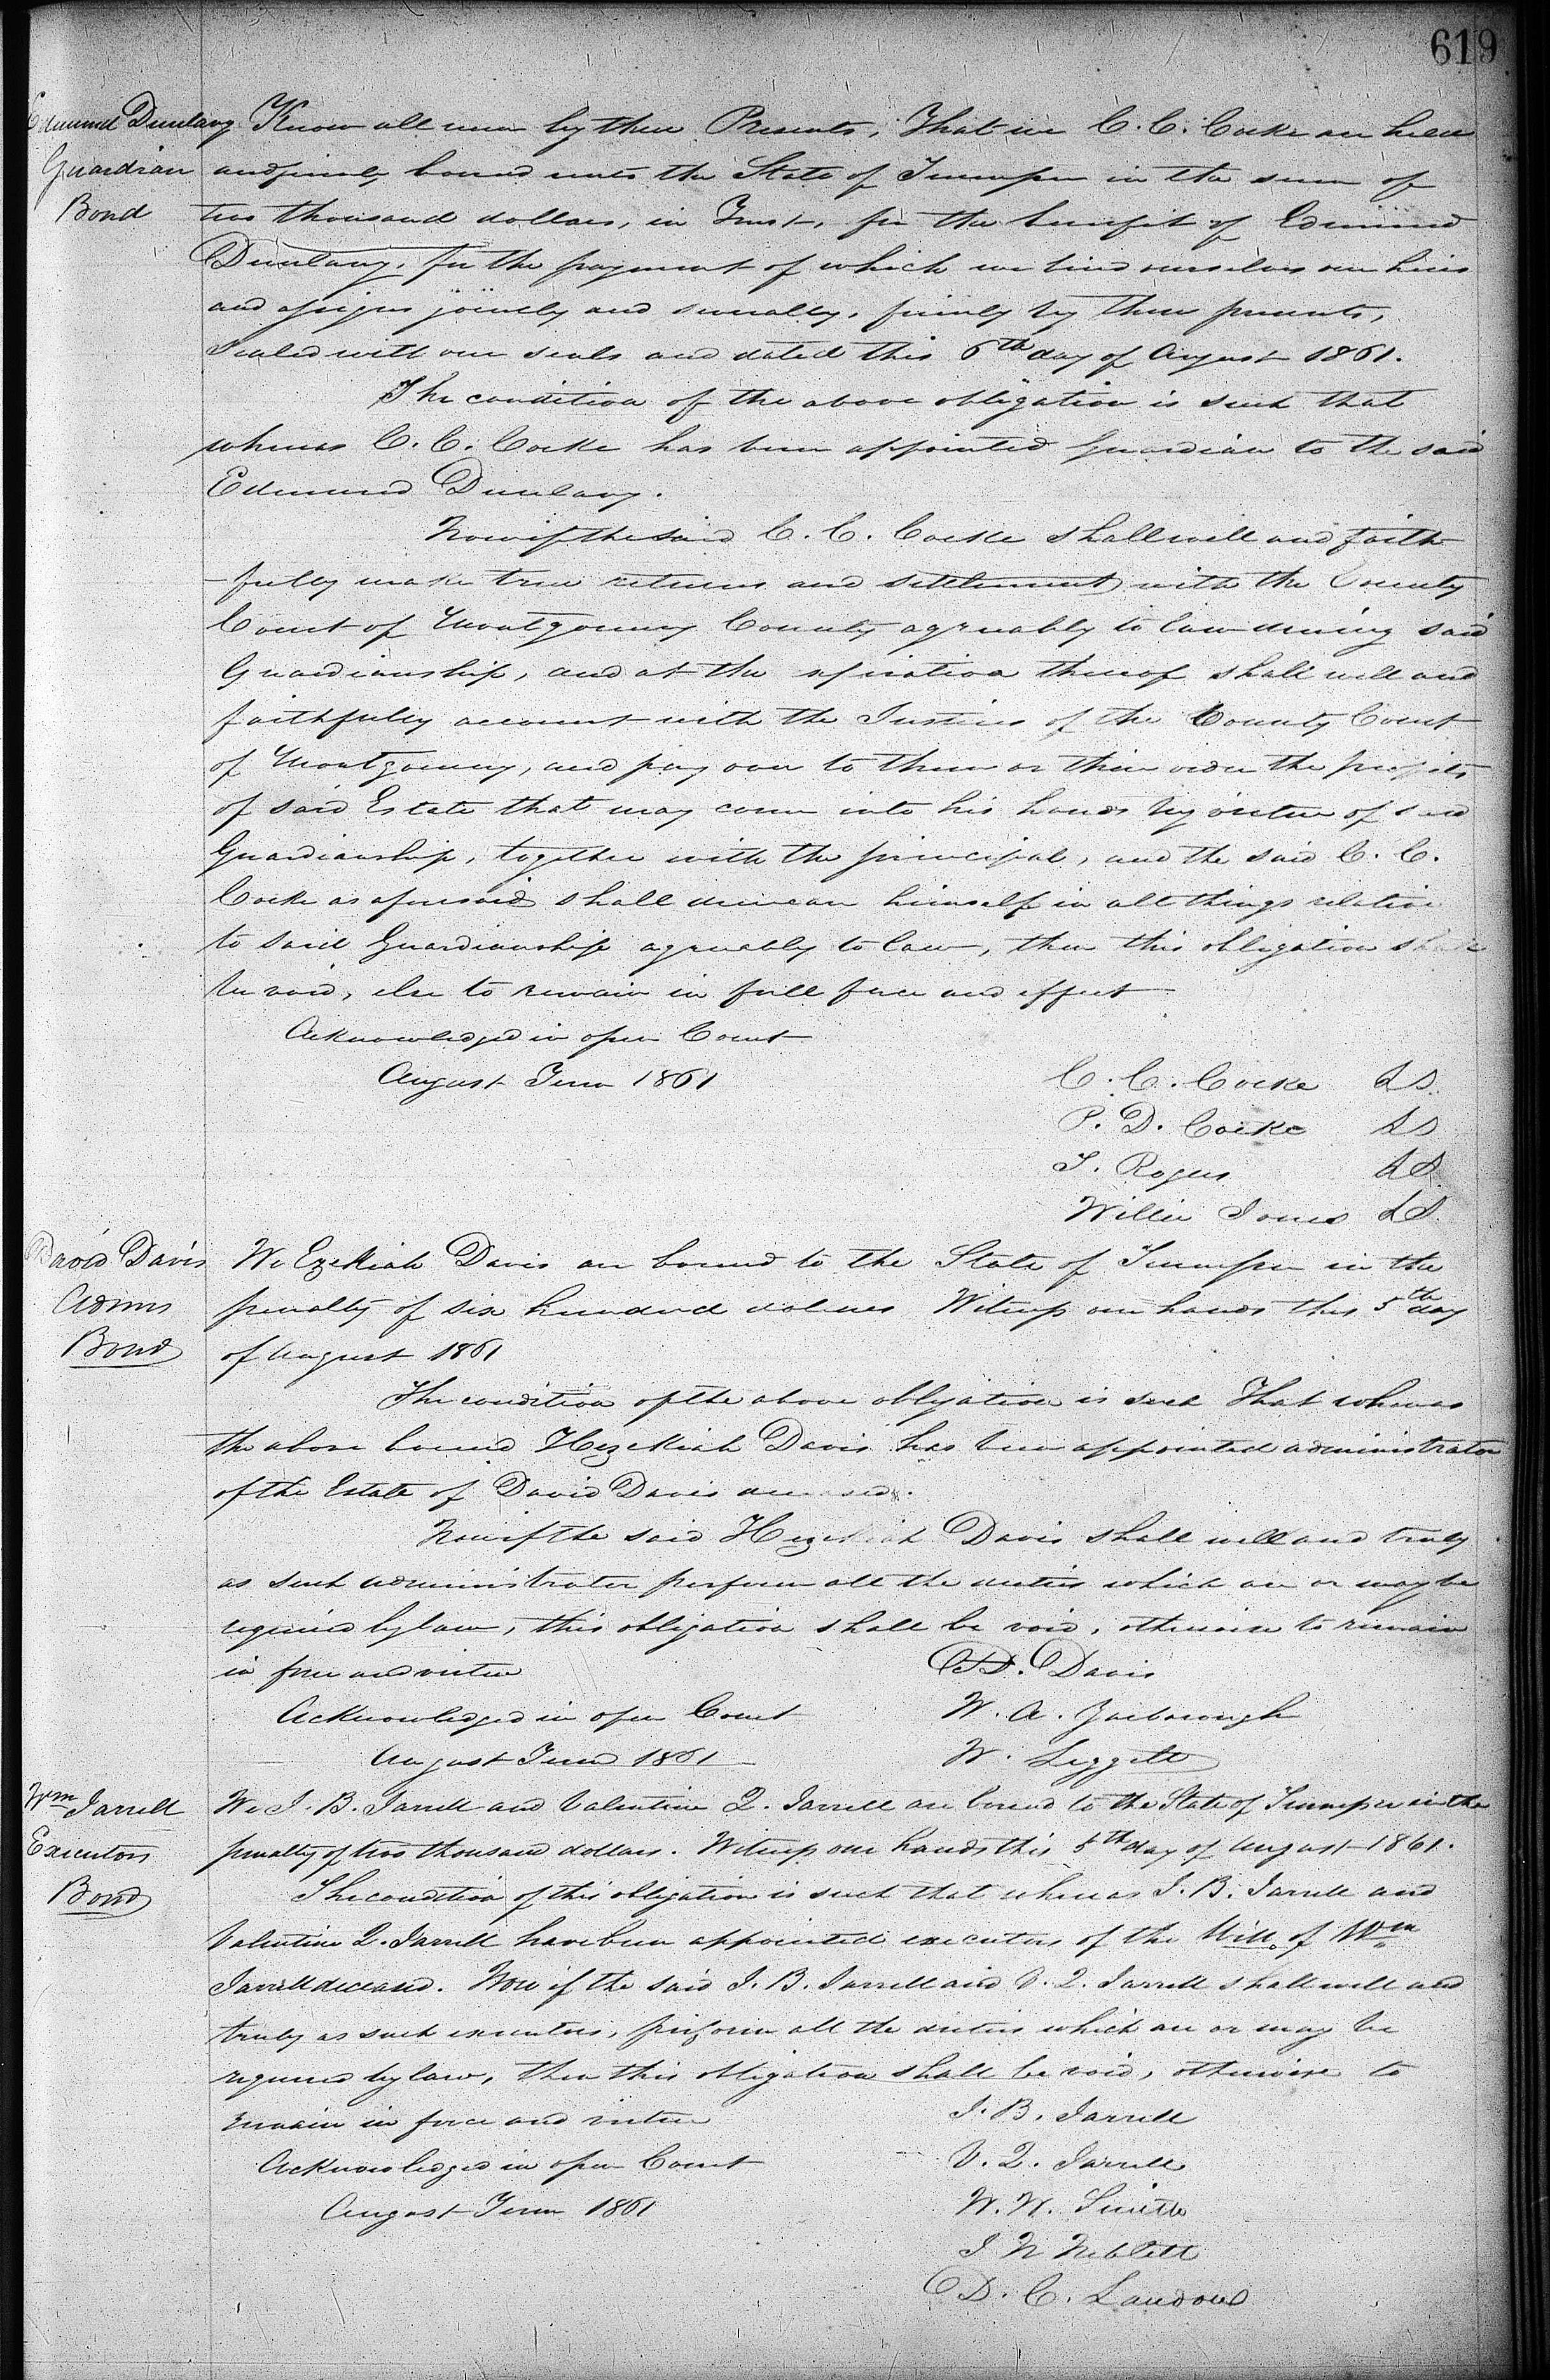 619
Edmund Dunlavy
Guardian
Bond
Know all men by these Presents, That we C. C. Cocke are held
and firmly bound unto the State of Tennessee in the sum of
two thousand dollars, in Trust, for the benefit of Edmund
Dunlavy, for the payment of which we bind ourselves our heirs
and assigns jointly and severally, firmly by these presents,
Sealed with our seals and dated this 6th day of August 1861.
The condition of the above obligation is such that
whereas C. C. Cocke has been appointed Guardian to the said
Edmund Dunlavy.
Now if the said C. C. Cocke shall well and faith
-fully make true returns and settlement with the County
Court of Montgomery County agreeably to law during said
Guardianship, and at the expiration thereof shall well and
faithfully account with the Justices of the County Court
of Montgomery, and pay over to them or their order the profits
of said Estate that may come into his hands by virtue of said
Guardianship, together with the principal, and the said C. C.
Cocke as aforesaid shall demean himself in all things relative
to said Guardianship agreeably to law, then this obligation shall
be void, else to remain in full force and effect
Acknowledged in open Court
August Term 1861
C. C. Cocke LS.
P. D. Cocke LS
J. Rogers LS.
Willie Jones LS.
David Davis
Admrs
Bond
We Ezekiah Davis are bound to the State of Tennessee in the
penalty of six hundred dollars Witness our hands this 5th day
of August 1861
The condition of the above obligation is such That whereas
the above bound Hezekiah Davis has been appointed administrator
of the Estate of David Davis deceased.
Now if the said Hezekiah Davis shall well and truly
as such administrator perform all the duties which are or may be
required by law, this obligation shall be void, otherwise to remain
in force and virtue
H. Davis
Acknowledged in open Court
W. A. Yarbrough
August Term 1861
W. Leggett
Wm Jarrell
Executors
Bond
We J. B. Jarrell and Valentine Q. Jarrell are bound to the State of Tennessee in the
penalty of two thousand dollars. Witness our hands this 5th day of August 1861.
The condition of this obligation is such that whereas J. B. Jarrell and
Valentine Q. Jarrell have been appointed executors of the Will of Wm
Jarrell deceased. Now if the said J. B. Jarrell and V. Q. Jarrell shall well and
truly as such executors, perform all the duties which are or may be
required by law, then this obligation shall be void, otherwise to
remain in force and virtue
J. B. Jarrell
Acknowledged in open Court
V. Q. Jarrell
August Term 1861
W. W. Smith
J N Neblett
D. C. Landon